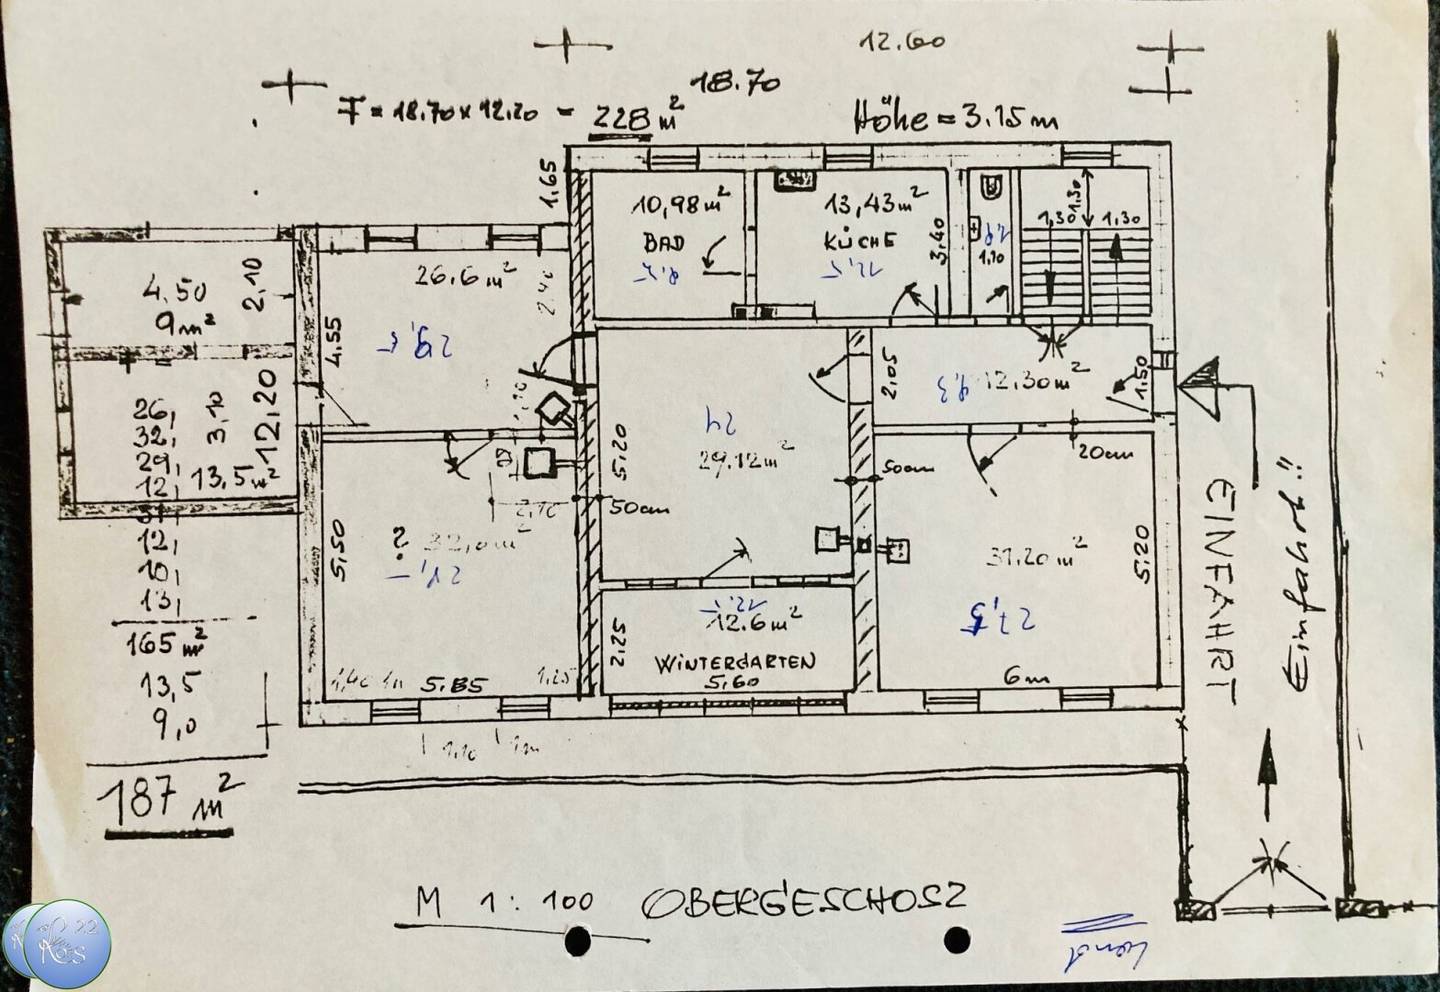 12.60
18.70
F = 18.70 x 12.20 = 228 m²
Höhe = 3.15 m
1,65
10,98 m²
BAD
13,43 m²
KÜCHE
3,40
1,30
1,30
1,30
4.50
9 m²
2,10
26.6 m²
2.40
4.55
29,5
1,10
2,05
12,30 m²
9,3
1,50
26,
32,
29,
12,
12,
10,
13,
165 m²
13,5
9,0
187 m²
3,10
12,20
13,5 m²
24
29.12 m²
5,20
50cm
50cm
20cm
5,50
? 32,0 m²
2,10
31.20 m²
5,20
27,5
12.6 m²
2,25
WINTERGARTEN
5,60
5.85
1,25
6m
1,10
1m
EINFAHRT
Einfahrt!!
M 1:100 OBERGESCHOSZ
22